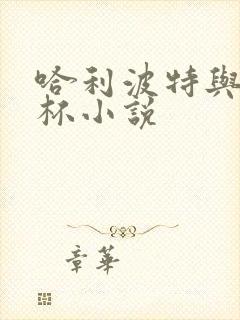 哈利波特與
杯小說
章華